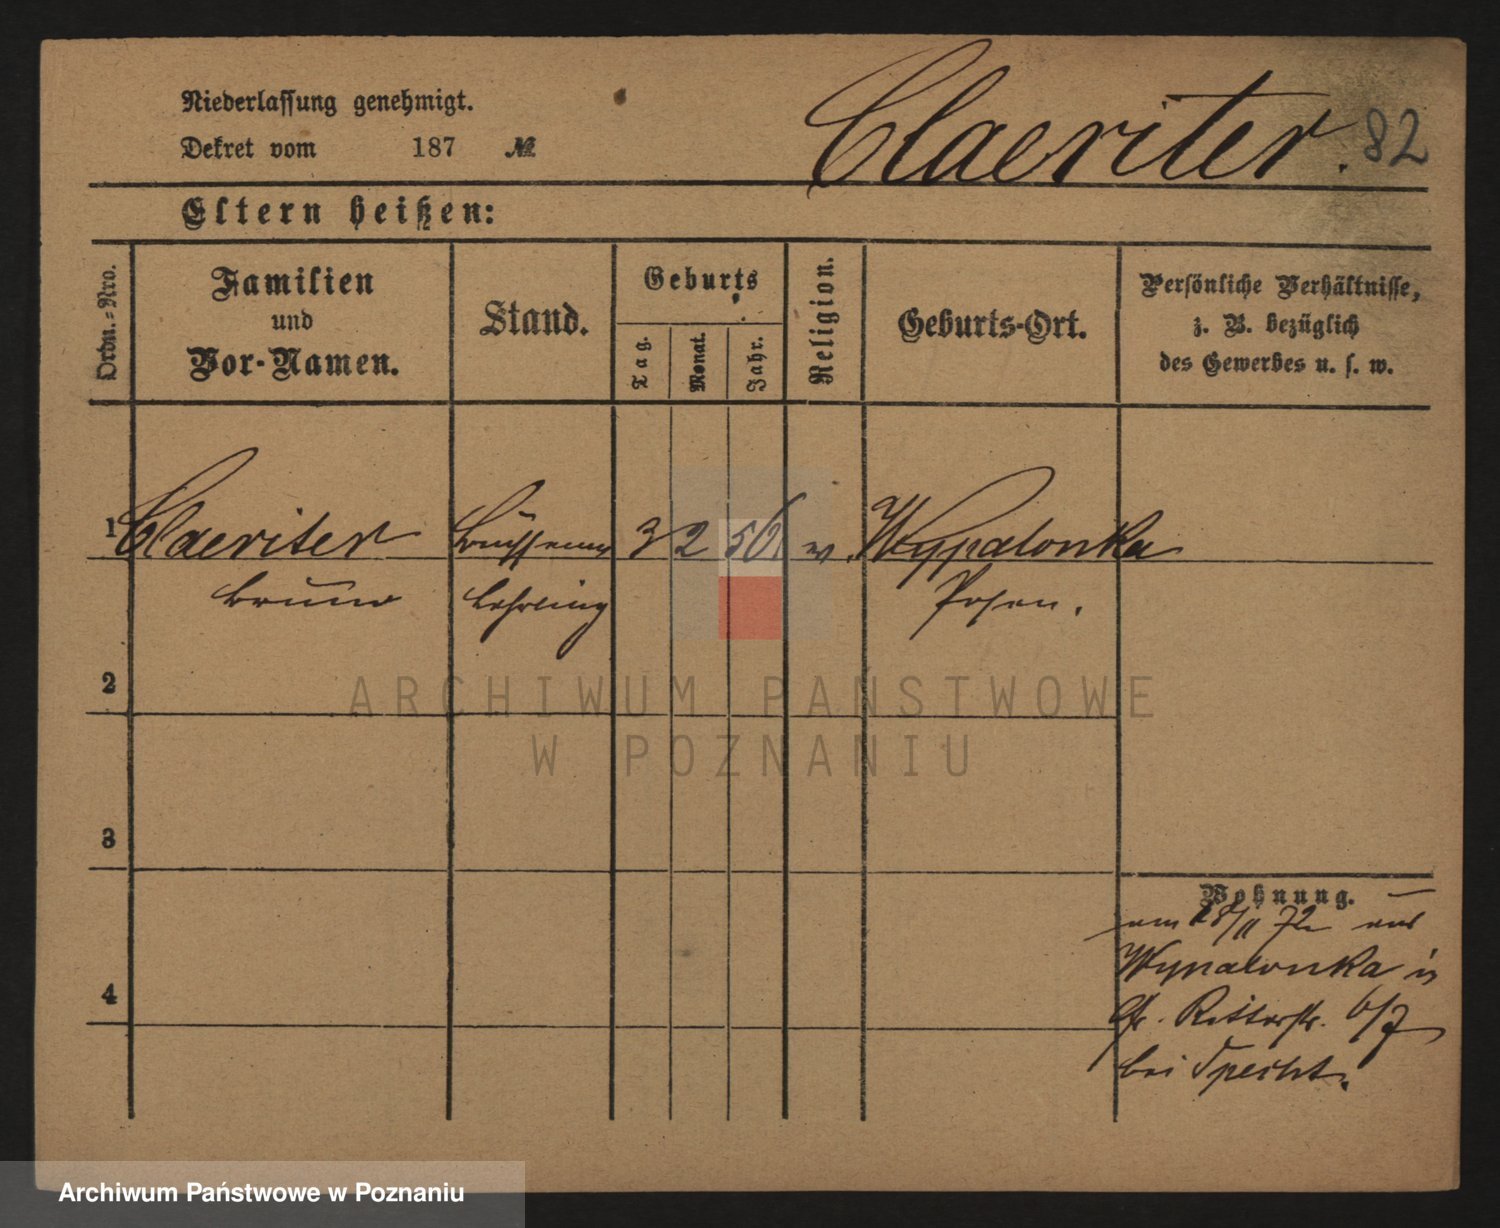 Niederlassung genehmigt.
Dekret vom 187 №
Claeriter. 82
Eltern heißen:
Ordn.-Nro.
Familien
und
Vor-Namen.
Stand.
Geburts
Tag.
Monat.
Jahr.
Religion.
Geburts-Ort.
Persönliche Verhältnisse,
z. B. bezüglich
des Gewerbes u. s. w.
1 Claeriter 3 2 56 Wypalonka
Bruno Lehrling Posen.
2
ARCHIWUM PAŃSTWOWE
W POZNANIU
3
Wohnung.
am 18/11 72 aus
Wypalonka in
Gr. Ritterstr. 6/7
bei Specht.
4
Archiwum Państwowe w Poznaniu